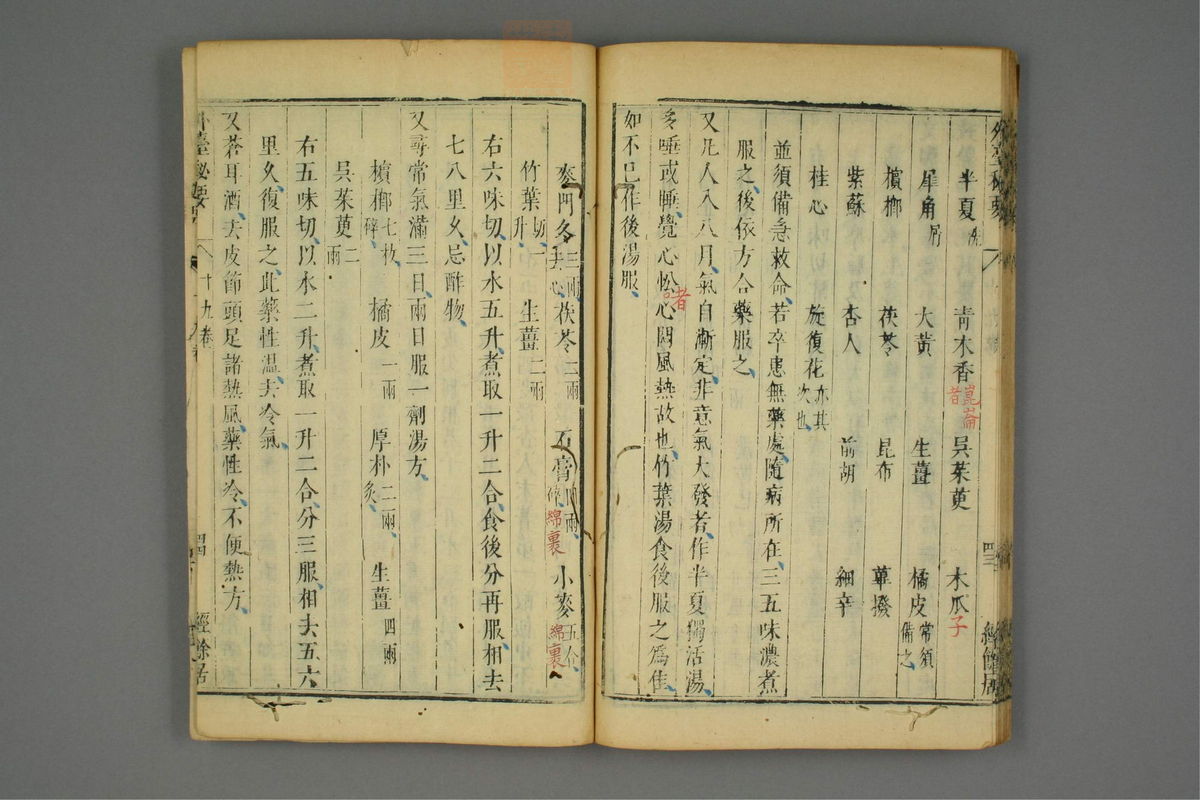 外臺秘要
半夏洗 青木香崑崙者 吳茱萸 木瓜子
犀角屑 大黃 生薑 橘皮常須備之
檳榔 茯苓 昆布 蓽撥
紫蘇 杏人 前胡 細辛
桂心 旋復花亦其次也
並須備急救命若卒患無藥處隨病所在三五味濃煮
服之後依方合藥服之
又凡人入八月氣自漸定非意氣大發者作半夏獨活湯
多唾或睡覺心忪心悶風熱故也竹葉湯食後服之為佳
者
如不已作後湯服
四三
經餘居
麥門冬三兩去心 茯苓三兩 石膏四兩碎綿裹 小麥五合綿裹
竹葉切一升 生薑二兩
右六味切以水五升煮取一升二合食後分再服相去
七八里久忌酢物
又尋常氣滿三日兩日服一劑湯方
檳榔七枚碎 橘皮一兩 厚朴二兩炙 生薑四兩
吳茱萸二兩
右五味切以水二升煮取一升二合分三服相去五六
里久復服之此藥性溫去冷氣
又蒼耳酒去皮節頭足諸熱風藥性冷不便熱方
外臺秘要
十九卷
四四
經餘居